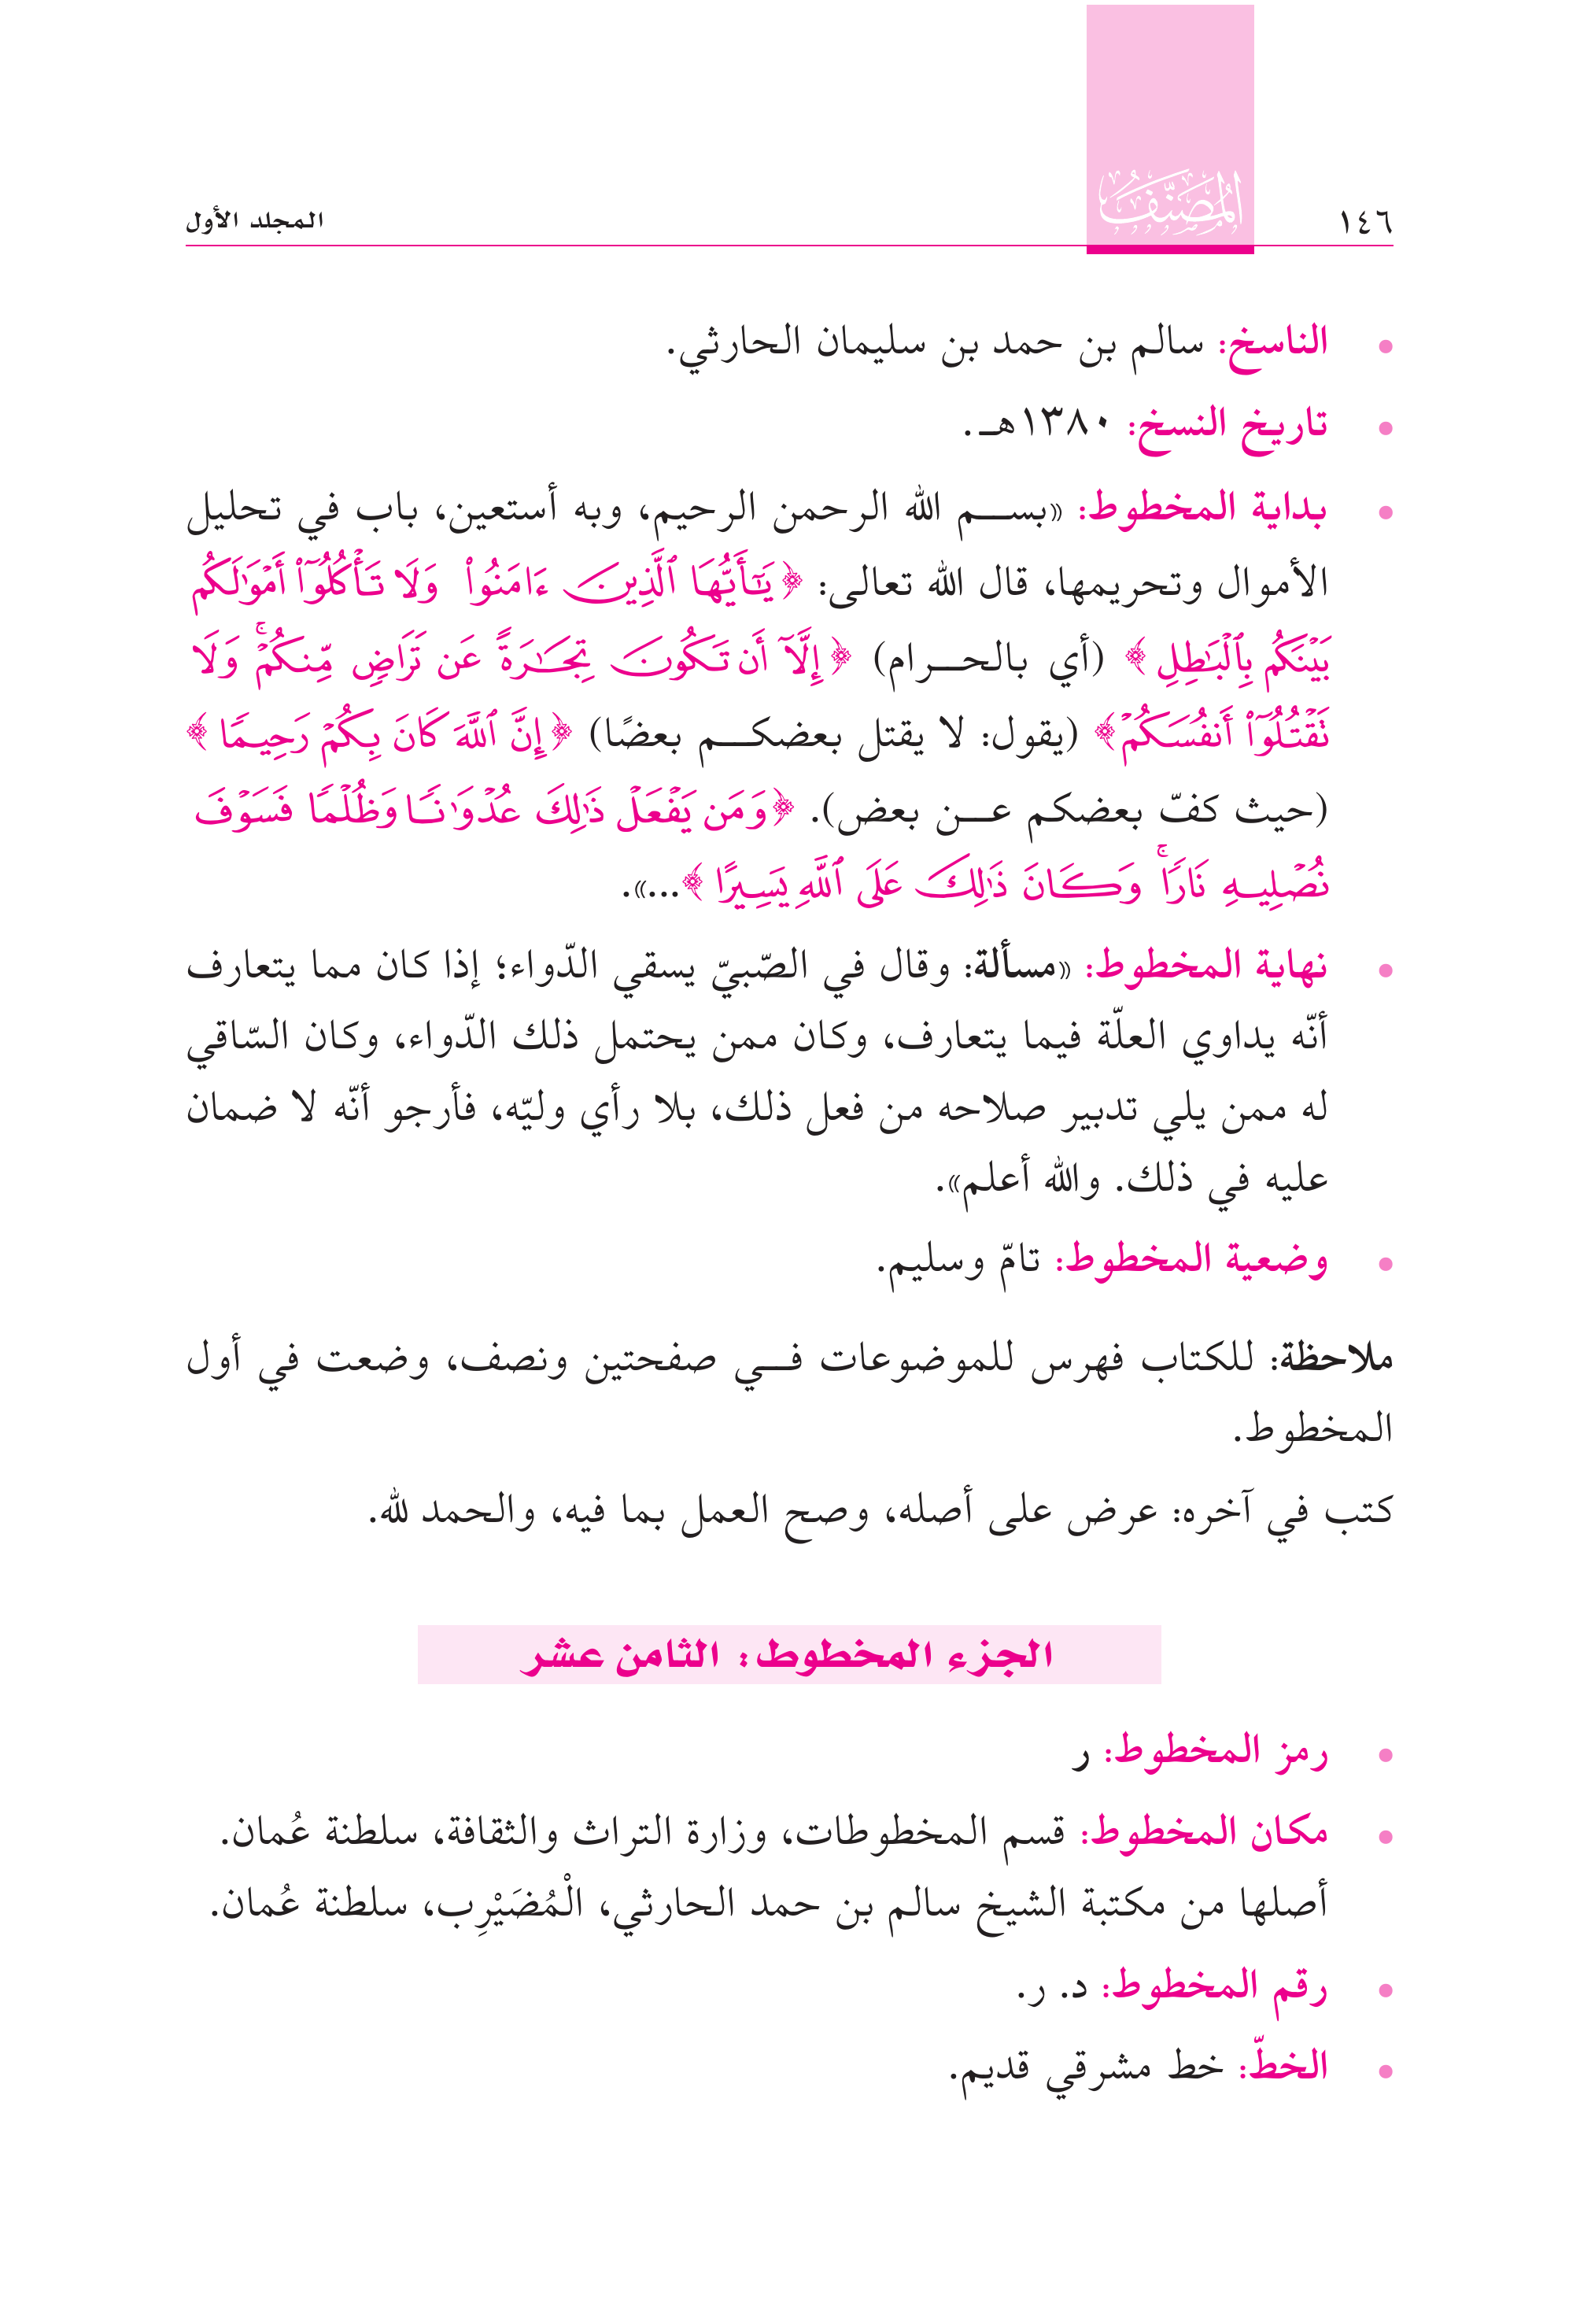 ١٤٦
المصنف
المجلد الأول
• الناسخ: سالم بن حمد بن سليمان الحارثي.
• تاريخ النسخ: ١٣٨٠هـ.
• بداية المخطوط: «بسم الله الرحمن الرحيم، وبه أستعين، باب في تحليل
الأموال وتحريمها، قال الله تعالى: ﴿يَٰٓأَيُّهَا ٱلَّذِينَ ءَامَنُوا۟ وَلَا تَأْكُلُوٓا۟ أَمْوَٰلَكُم
بَيْنَكُم بِٱلْبَٰطِلِ﴾ (أي بالحرام) ﴿إِلَّآ أَن تَكُونَ تِجَٰرَةً عَن تَرَاضٍ مِّنكُمْ ۚ وَلَا
تَقْتُلُوٓا۟ أَنفُسَكُمْ﴾ (يقول: لا يقتل بعضكم بعضًا) ﴿إِنَّ ٱللَّهَ كَانَ بِكُمْ رَحِيمًا﴾
(حيث كفّ بعضكم عن بعض). ﴿وَمَن يَفْعَلْ ذَٰلِكَ عُدْوَٰنًا وَظُلْمًا فَسَوْفَ
نُصْلِيهِ نَارًا ۚ وَكَانَ ذَٰلِكَ عَلَى ٱللَّهِ يَسِيرًا﴾...».
• نهاية المخطوط: «مسألة: وقال في الصّبيّ يسقي الدّواء؛ إذا كان مما يتعارف
أنّه يداوي العلّة فيما يتعارف، وكان ممن يحتمل ذلك الدّواء، وكان السّاقي
له ممن يلي تدبير صلاحه من فعل ذلك، بلا رأي وليّه، فأرجو أنّه لا ضمان
عليه في ذلك. والله أعلم».
• وضعية المخطوط: تامّ وسليم.
ملاحظة: للكتاب فهرس للموضوعات في صفحتين ونصف، وضعت في أول
المخطوط.
كتب في آخره: عرض على أصله، وصح العمل بما فيه، والحمد لله.
الجزء المخطوط: الثامن عشر
• رمز المخطوط: ر
• مكان المخطوط: قسم المخطوطات، وزارة التراث والثقافة، سلطنة عُمان.
أصلها من مكتبة الشيخ سالم بن حمد الحارثي، الْمُضَيْرِب، سلطنة عُمان.
• رقم المخطوط: د. ر.
• الخطّ: خط مشرقي قديم.